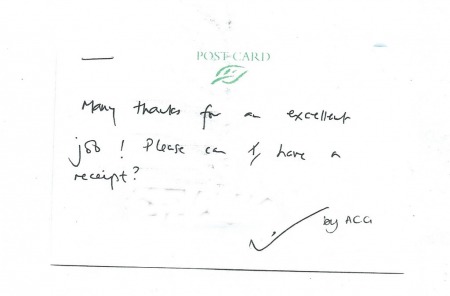 POST-CARD
Many thanks for an excellent
job! Please can I, have a
receipt?
by ACG